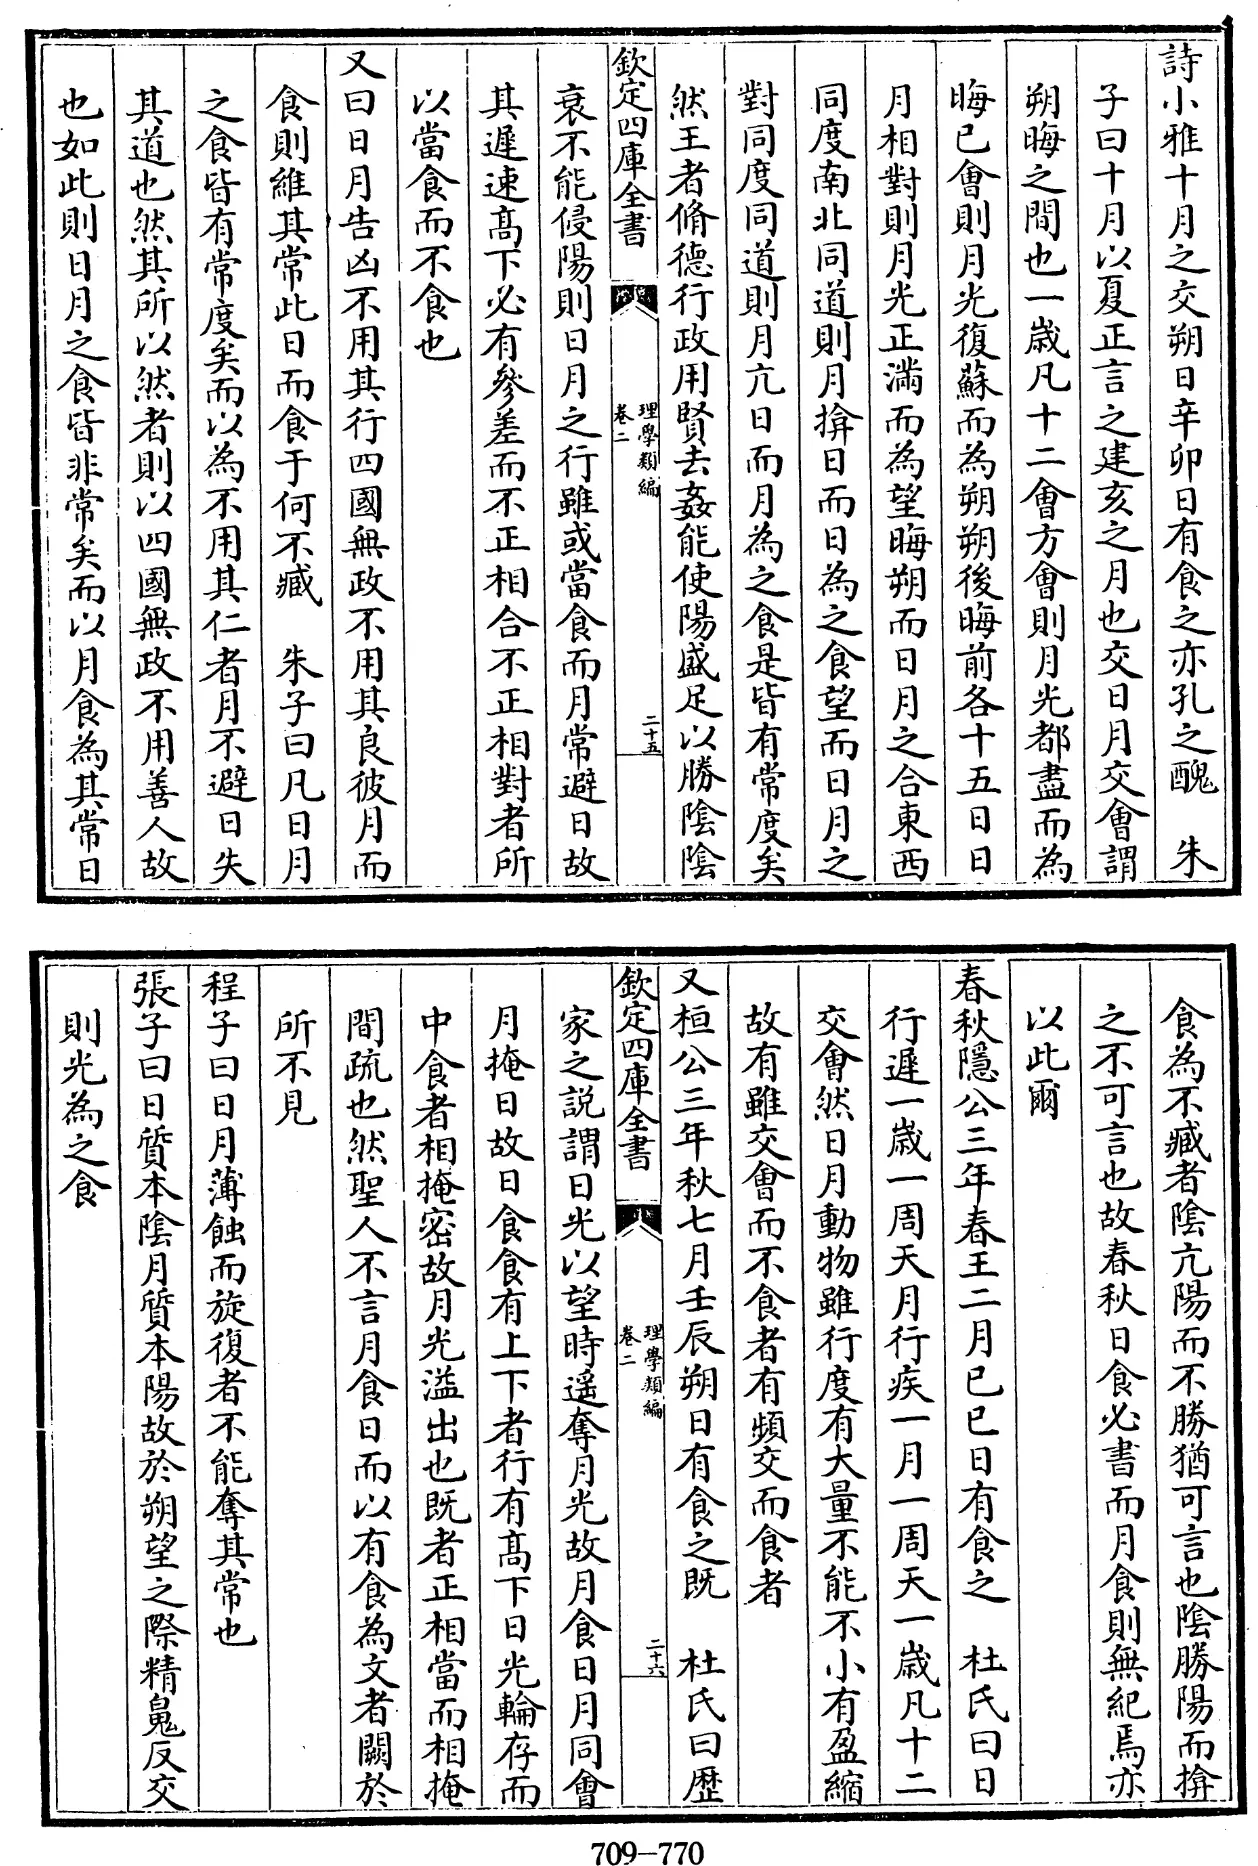 詩小雅十月之交朔日辛卯日有食之亦孔之醜　朱
子曰十月以夏正言之建亥之月也交日月交會謂
朔晦之間也一歳凡十二會方會則月光都盡而為
晦已會則月光復蘇而為朔朔後晦前各十五日日
月相對則月光正滿而為望晦朔而日月之合東西
同度南北同道則月揜日而日為之食望而日月之
對同度同道則月亢日而月為之食是皆有常度矣
然王者脩德行政用賢去姦能使陽盛足以勝陰陰
欽定四庫全書
理學類編
卷二
二十五
衰不能侵陽則日月之行雖或當食而月常避日故
其遲速髙下必有參差而不正相合不正相對者所
以當食而不食也
又曰日月告凶不用其行四國無政不用其良彼月而
食則維其常此日而食于何不臧　朱子曰凡日月
之食皆有常度矣而以為不用其仁者月不避日失
其道也然其所以然者則以四國無政不用善人故
也如此則日月之食皆非常矣而以月食為其常日
食為不臧者陰亢陽而不勝猶可言也陰勝陽而揜
之不可言也故春秋日食必書而月食則無紀焉亦
以此爾
春秋隱公三年春王二月已巳日有食之　杜氏曰日
行遲一歳一周天月行疾一月一周天一歳凡十二
交會然日月動物雖行度有大量不能不小有盈縮
故有雖交會而不食者有頻交而食者
又桓公三年秋七月壬辰朔日有食之既　杜氏曰歴
欽定四庫全書
理學類編
卷二
二十六
家之説謂日光以望時遥奪月光故月食日月同會
月掩日故日食食有上下者行有髙下日光輪存而
中食者相掩密故月光溢出也既者正相當而相掩
間疏也然聖人不言月食日而以有食為文者闕於
所不見
程子曰日月薄蝕而旋復者不能奪其常也
張子曰日質本陰月質本陽故於朔望之際精鬼反交
則光為之食
709-770